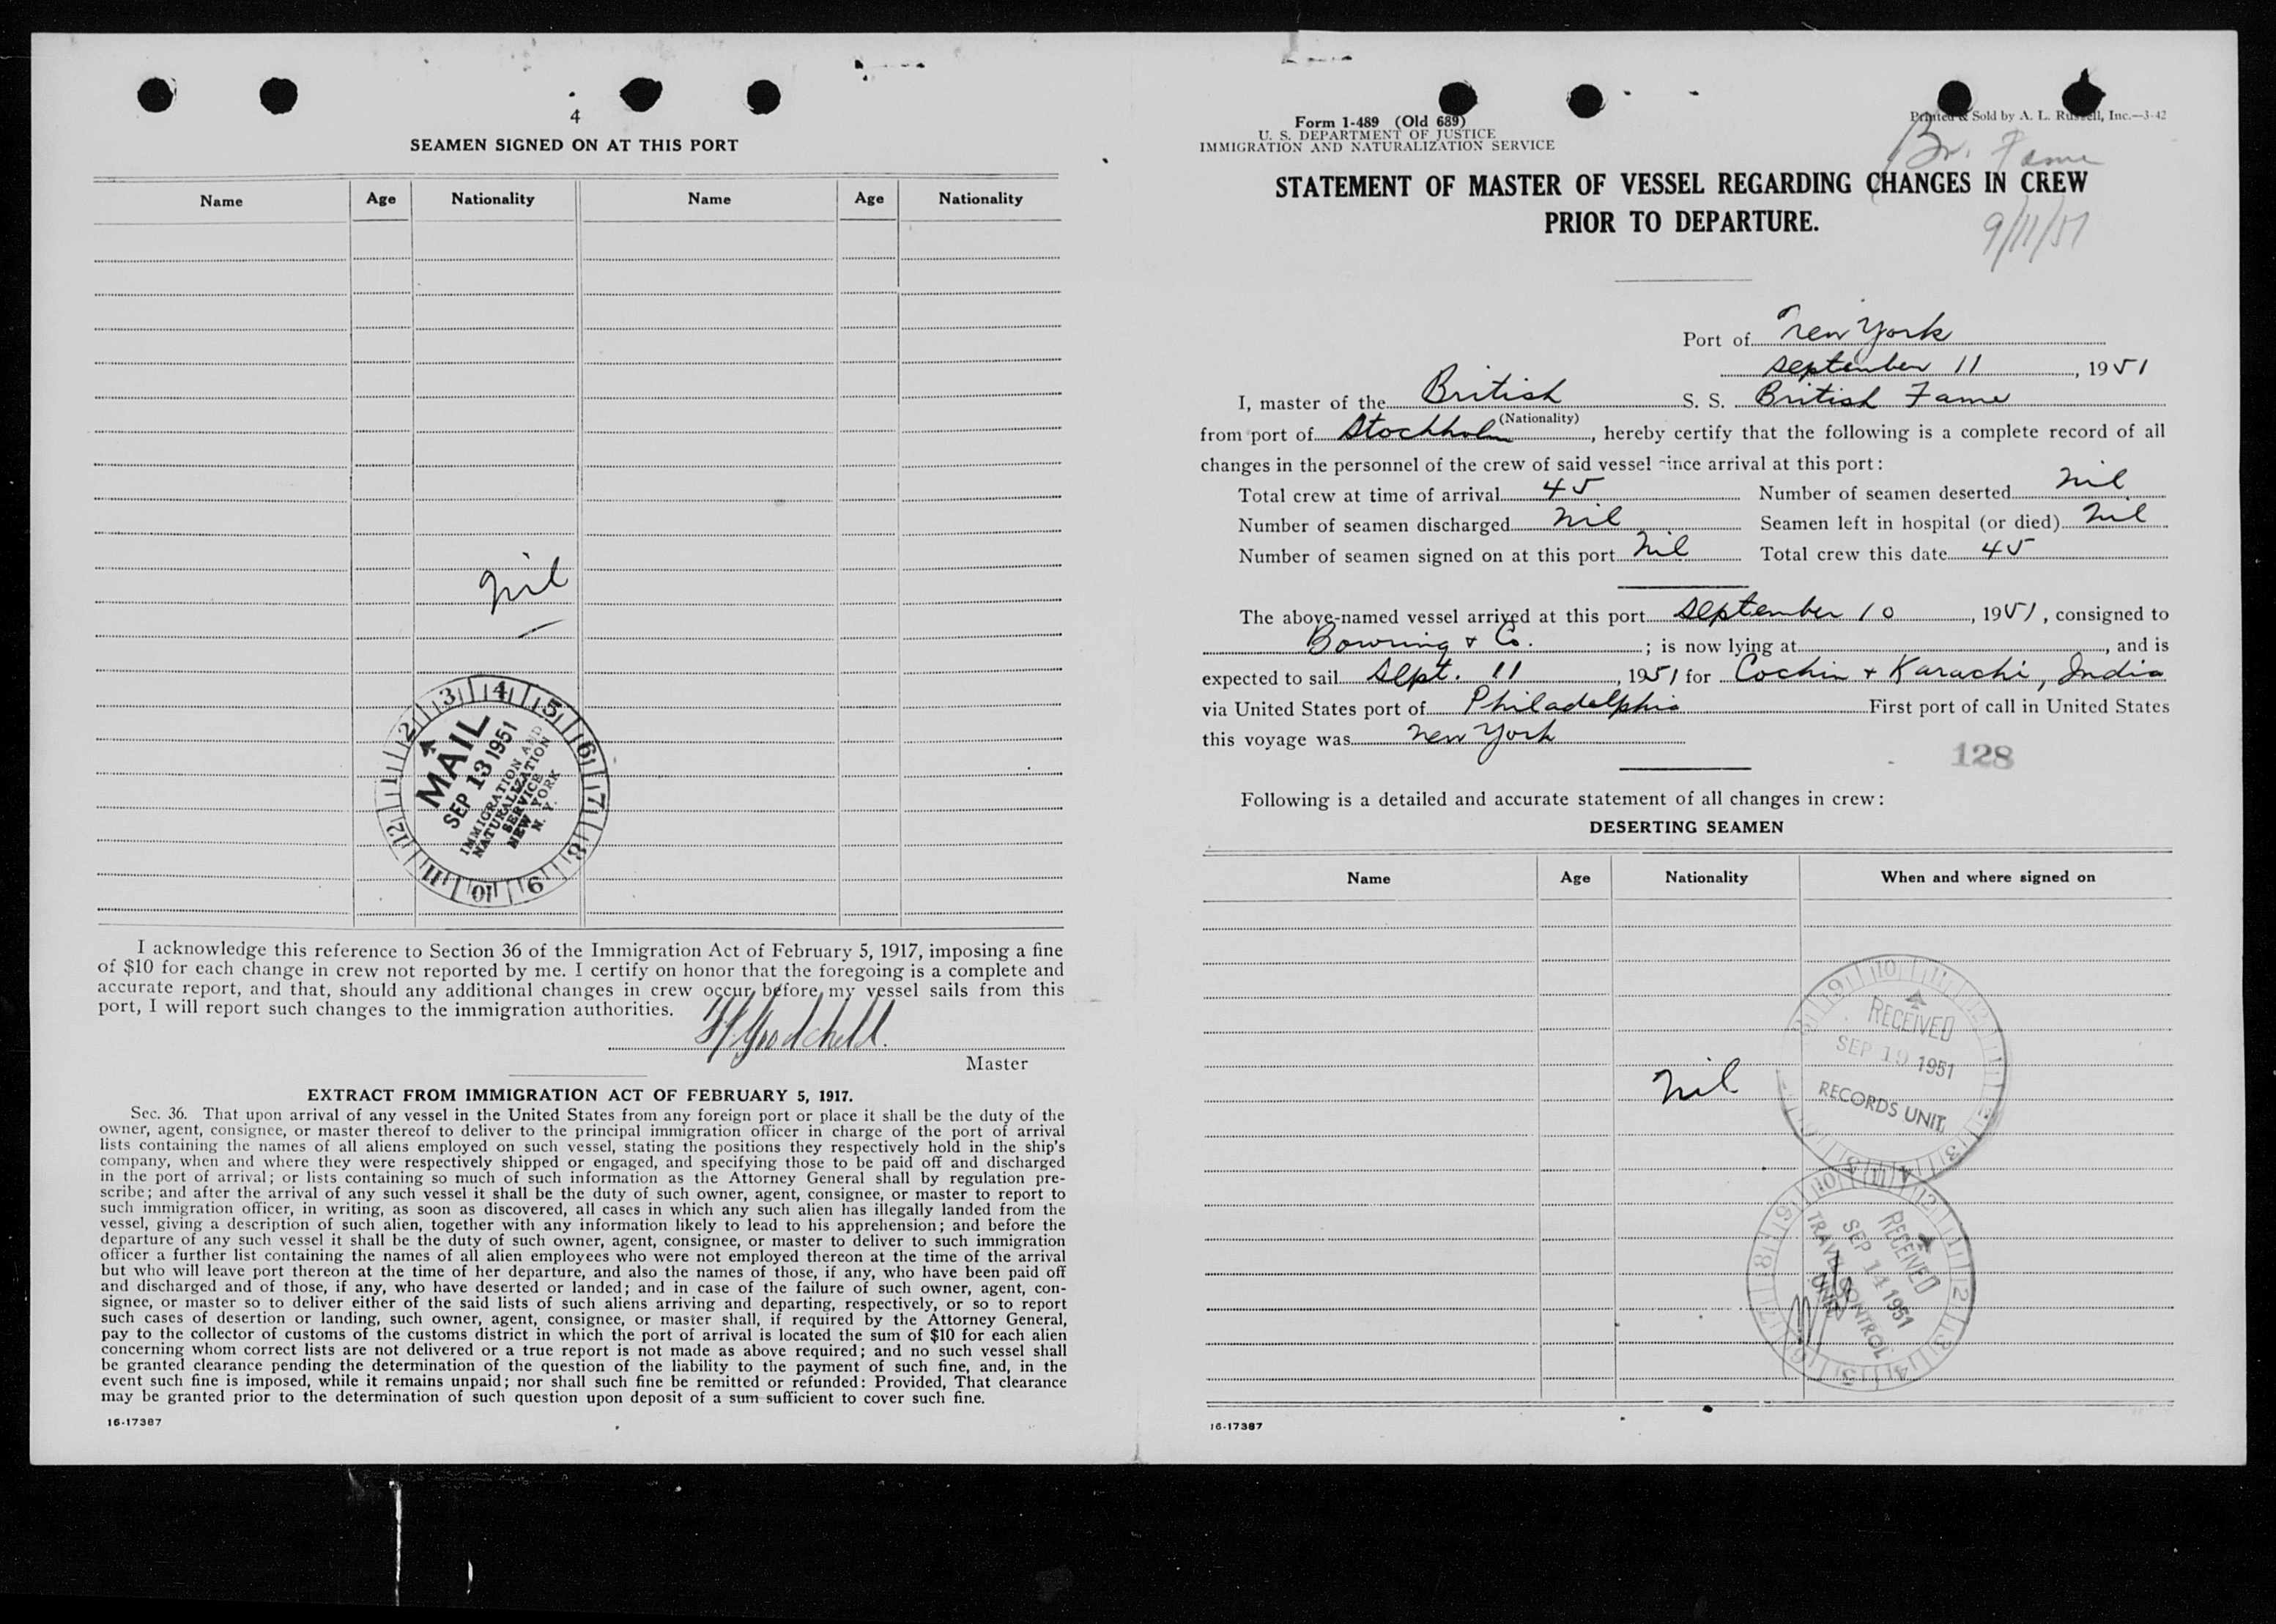 4
SEAMEN SIGNED ON AT THIS PORT
Name Age Nationality Name Age Nationality
nil
MAIL
SEP 13 1951
IMMIGRATION AND
NATURALIZATION
SERVICE
NEW YORK
N. Y.
1 2 3 4 5 6 7 8 9 10 11 12
I acknowledge this reference to Section 36 of the Immigration Act of February 5, 1917, imposing a fine
of $10 for each change in crew not reported by me. I certify on honor that the foregoing is a complete and
accurate report, and that, should any additional changes in crew occur before my vessel sails from this
port, I will report such changes to the immigration authorities.
Master
EXTRACT FROM IMMIGRATION ACT OF FEBRUARY 5, 1917.
Sec. 36. That upon arrival of any vessel in the United States from any foreign port or place it shall be the duty of the
owner, agent, consignee, or master thereof to deliver to the principal immigration officer in charge of the port of arrival
lists containing the names of all aliens employed on such vessel, stating the positions they respectively hold in the ship's
company, when and where they were respectively shipped or engaged, and specifying those to be paid off and discharged
in the port of arrival; or lists containing so much of such information as the Attorney General shall by regulation pre-
scribe; and after the arrival of any such vessel it shall be the duty of such owner, agent, consignee, or master to report to
such immigration officer, in writing, as soon as discovered, all cases in which any such alien has illegally landed from the
vessel, giving a description of such alien, together with any information likely to lead to his apprehension; and before the
departure of any such vessel it shall be the duty of such owner, agent, consignee, or master to deliver to such immigration
officer a further list containing the names of all alien employees who were not employed thereon at the time of the arrival
but who will leave port thereon at the time of her departure, and also the names of those, if any, who have been paid off
and discharged and of those, if any, who have deserted or landed; and in case of the failure of such owner, agent, con-
signee, or master so to deliver either of the said lists of such aliens arriving and departing, respectively, or so to report
such cases of desertion or landing, such owner, agent, consignee, or master shall, if required by the Attorney General,
pay to the collector of customs of the customs district in which the port of arrival is located the sum of $10 for each alien
concerning whom correct lists are not delivered or a true report is not made as above required; and no such vessel shall
be granted clearance pending the determination of the question of the liability to the payment of such fine, and, in the
event such fine is imposed, while it remains unpaid; nor shall such fine be remitted or refunded: Provided, That clearance
may be granted prior to the determination of such question upon deposit of a sum sufficient to cover such fine.
16-17387
Form 1-489 (Old 689)
U. S. DEPARTMENT OF JUSTICE
IMMIGRATION AND NATURALIZATION SERVICE
Printed & Sold by A. L. Russell, Inc.—3-42
Br. Fame
STATEMENT OF MASTER OF VESSEL REGARDING CHANGES IN CREW
PRIOR TO DEPARTURE.
9/11/51
Port of New York
September 11, 1951
I, master of the British S. S. British Fame
(Nationality)
from port of Stockholm, hereby certify that the following is a complete record of all
changes in the personnel of the crew of said vessel since arrival at this port:
Total crew at time of arrival 45 Number of seamen deserted nil
Number of seamen discharged nil Seamen left in hospital (or died) nil
Number of seamen signed on at this port nil Total crew this date 45
The above-named vessel arrived at this port September 10, 1951, consigned to
Bowring & Co.; is now lying at, and is
expected to sail Sept. 11, 1951 for Cochin + Karachi, India
via United States port of Philadelphia First port of call in United States
this voyage was New York
128
Following is a detailed and accurate statement of all changes in crew:
DESERTING SEAMEN
Name Age Nationality When and where signed on
nil
RECEIVED
SEP 19 1951
RECORDS UNIT.
RECEIVED
SEP 14 1951
TRAVEL CONTROL
UNIT
16-17387